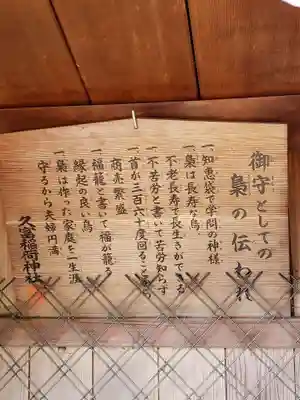 御守としての
梟の伝われ
一知恵袋で学問の神様
一梟は長寿な鳥
不老長寿で長生きができる
一不苦労と書いて苦労知らず
一首が三百六十度回ることから
商売繁盛
一福籠と書いて福が籠る
縁起の良い鳥
一梟は作った家庭を一生涯
守るから夫婦円満
久富稲荷神社